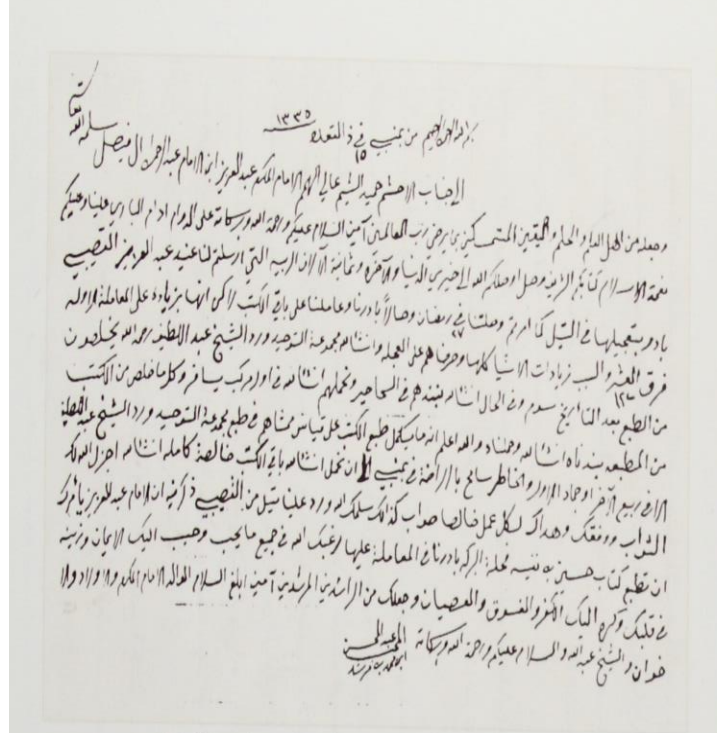 بسم الله الرحمن الرحيم من بمبي في ١٥ ذ القعدة ١٣٣٥
الى جناب الاحشم حميد الشيم عالي الهمم الامام المكرم عبد العزيز ابن الامام عبد الرحمن ال فيصل سلمه الله تعالى
وجعله من اهل العلم والحلم واليقين امين رب العالمين آمين السلام عليكم ورحمة الله وبركاته على الدوام ادام الباري علينا وعليكم
نعمة الاسلام كتابكم الشريف وصل اوصلكم الله الى خيري الدنيا والآخره وثمانية الآلاف الربيه التي ارسلتم لنا عند عبد العزيز القصيبي
بادر بتعجيلها في التيل كما امرتم وصلتنا في ٢٧ رمضان وحالاً بادرنا وعاملنا على باقي الكتب لاكن انها بزيادة على المعاملة الاوله
فرق العشر والسبب زيادات الاشيا كلها وحرصناهم على العجله وانشالله مجموعة التوحيد ورد الشيخ عبد اللطيف رحمه الله يخلصون
من الطبع بعد التاريخ وفي الحال انشالله نبندهم في السحاحير ونحملهم انشالله في اول مركب يسافر وكل ما خلص من الكتب
من المطبعه بندناه انشالله وحملناه والله اعلم انه ما يكمل طبع الكتب على قياس ممشاهم في طبع مجموعة التوحيد ورد الشيخ عبد اللطيف
الا في ربيع الآخر او جماد الاول والخاطر سامح بالاقامة في بمبي الى ان نحمل انشالله باقي الكتب خالصة كامله انشالله اجزل الله لك
الثواب ووفقك وهداك لكل عمل خالصا صواب كذالك سلمك الله ورد علينا تيل من القصيبي ذكر فيه ان الامام عبد العزيز يامرك
ان تطبع كتاب حسين به نفيسه عجلة البركه بادرنا في المعاملة عليها رغبك الله في جميع ما يحب وحبب اليك الايمان وزينه
في قلبك وكره اليك الكفر والفسوق والعصيان وجعلك من الراشدين المرشدين آمين ابلغ السلام الوالد الامام المكرم والاولاد والا
خوان والشيخ عبد الله والسلام عليكم ورحمة الله وبركاته
عبد المحسن